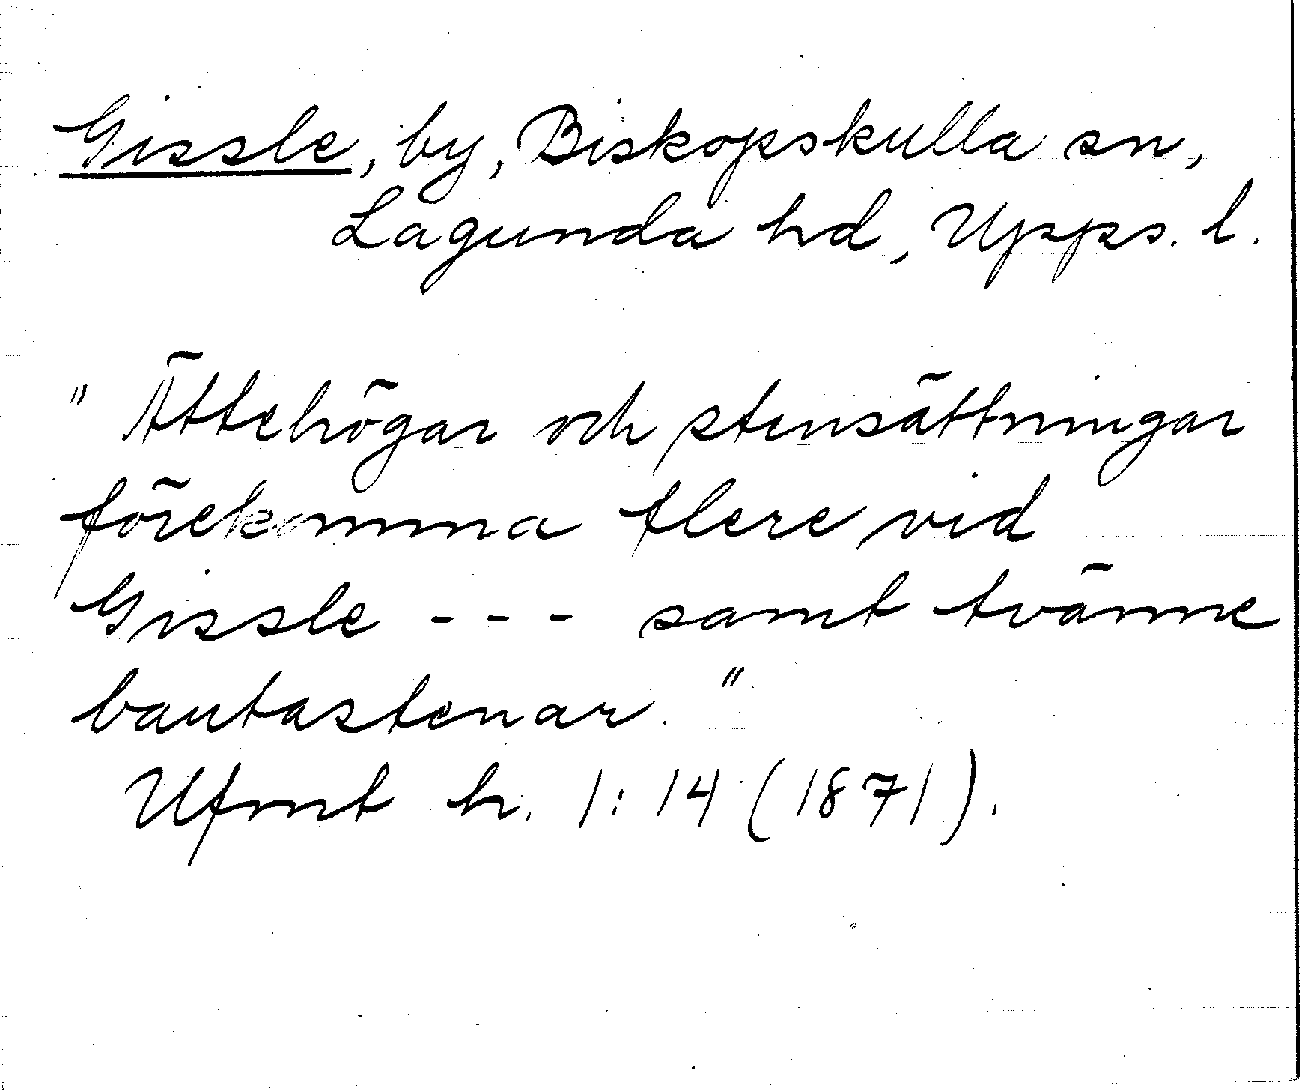 Gissle, by, Biskopskulla sn,
Lagunda hd, Upps. l.
" Ättehögar och stensättningar
förekomma flere vid
Gissle --- samt tvänne
bautastenar."
Ufmt h. 1:14 (1871).